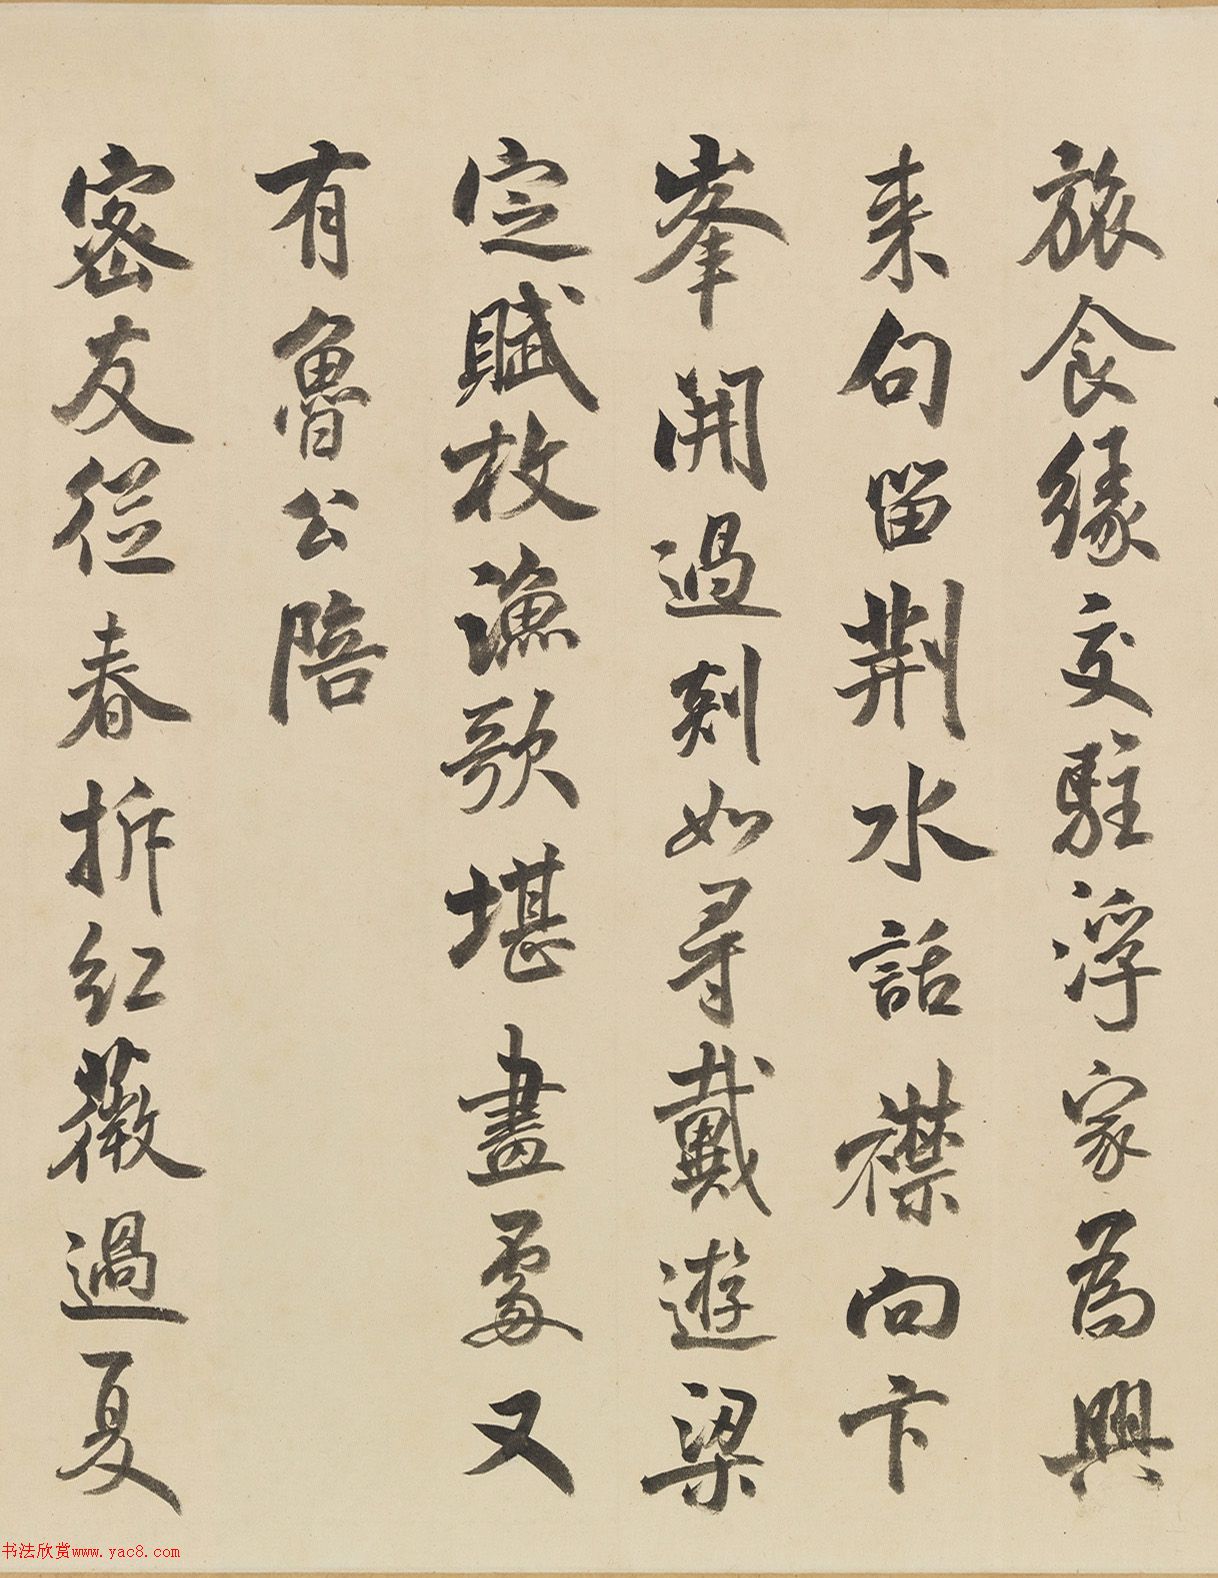 旅食緣交駐浮家為興
来句留荆水話襟向卞
峯開過剡如尋戴遊梁
定賦枚漁歌堪畫處又
有魯公陪
密友從春拆紅薇過夏
书法欣赏www.yac8.com